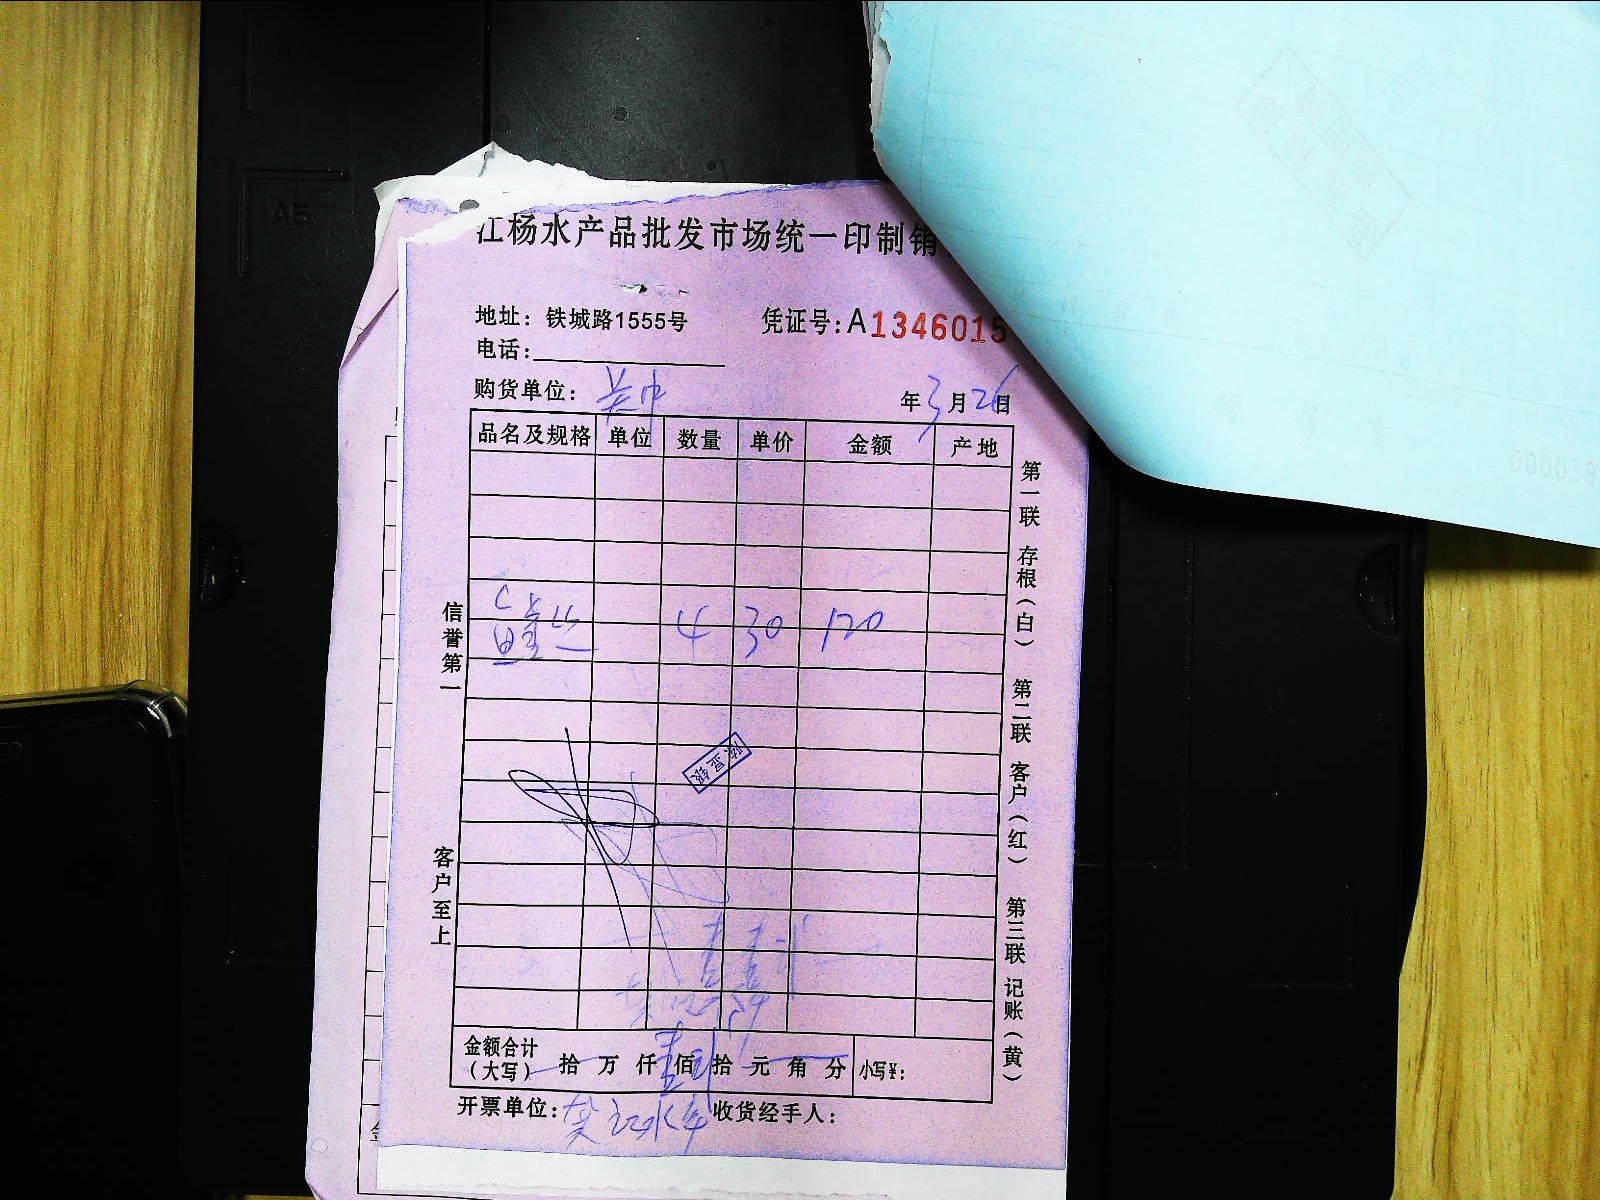 江杨水产品批发市场统一印制销
地址：铁城路1555号 凭证号：A1346015
电话：
购货单位： 年3月26日
品名及规格 单位 数量 单价 金额 产地
4 30 120
信誉第一 客户至上
第一联 存根（白） 第二联 客户（红） 第三联 记账（黄）
金额合计（大写） 拾 万 仟 佰 拾 元 角 分 小写¥：
开票单位： 收货经手人：
A5